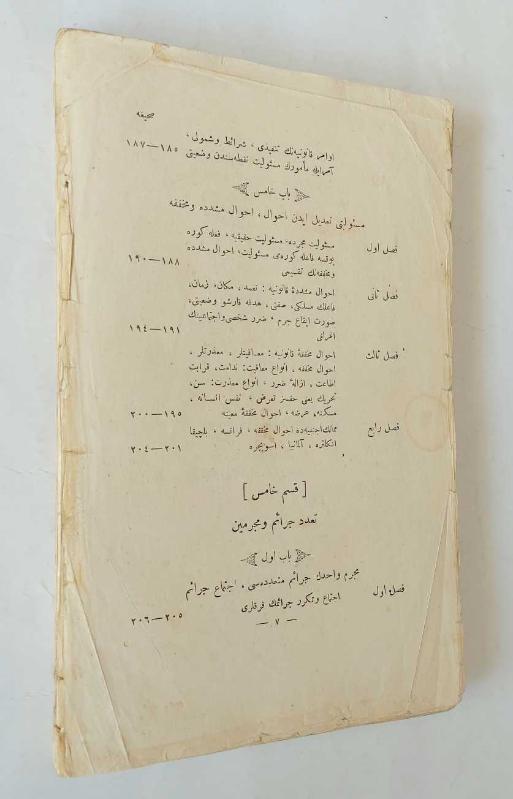 صحيفه
اوامر قانونيه‌نك تنفيذى ، شرائط وشمولى ،
مأمورك مسئوليت نقطه‌سندن وضعيتى ١٨٥—١٨٧
باب خامس
مسئوليتى تعديل ايدن احوال ، احوال مشدده ومخففه
فصل اول مسئوليت مجرده، مسئوليت حقيقيه ، فعله كوره
يوقسه فاعله كوره‌مى مسئوليت، احوال مشدده
ومخففه‌نك تقسيمى ١٨٨—١٩٠
فصل ثانى احوال مشددۀ قانونيه : قصد ، مكان ، زمان،
فاعلك مسلكى، صفتى ، هدفه قارشو وضعيتى،
صورت ايقاع جرم ، ضرر شخصى واجتماعينك
١٩١—١٩٤
فصل ثالث احوال مخففۀ قانونيه : معافيتلر ، معذرتلر ،
احوال مخففه ، انواع معافيت: ندامت، قرابت
اطاعت ، ازالۀ ضرر ، انواع معذرت: سن،
تحريك يعنى حقسز تعرض ، نفس انسانه ،
مسكنه، عرضه ، احوال مخففۀ معينه ١٩٥—٢٠٠
فصل رابع ممالك اجنبيه‌ده احوال مخففه ، فرانسه ، بلچيقا
انكلتره ، آلمانيا ، اسويچره ٢٠١—٢٠٤
[ قسم خامس ]
تعدد جرائم ومجرمين
باب اول
فصل اول مجرم واحدك جرائم متعدده‌سى ، اجتماع جرائم
اجتماع وتكرر جرائمك فرقلرى ٢٠٥—٢٠٦
— ٧ —